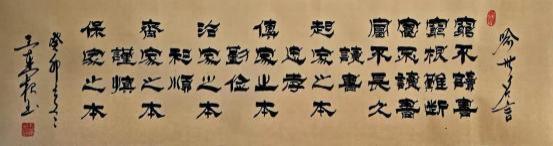 喻世名言
窮不讀書
窮根難斷
富不讀書
富不長久
讀書
起家之本
忠孝
傳家之本
勤儉
治家之本
和順
齊家之本
謹慎
保家之本
癸卯